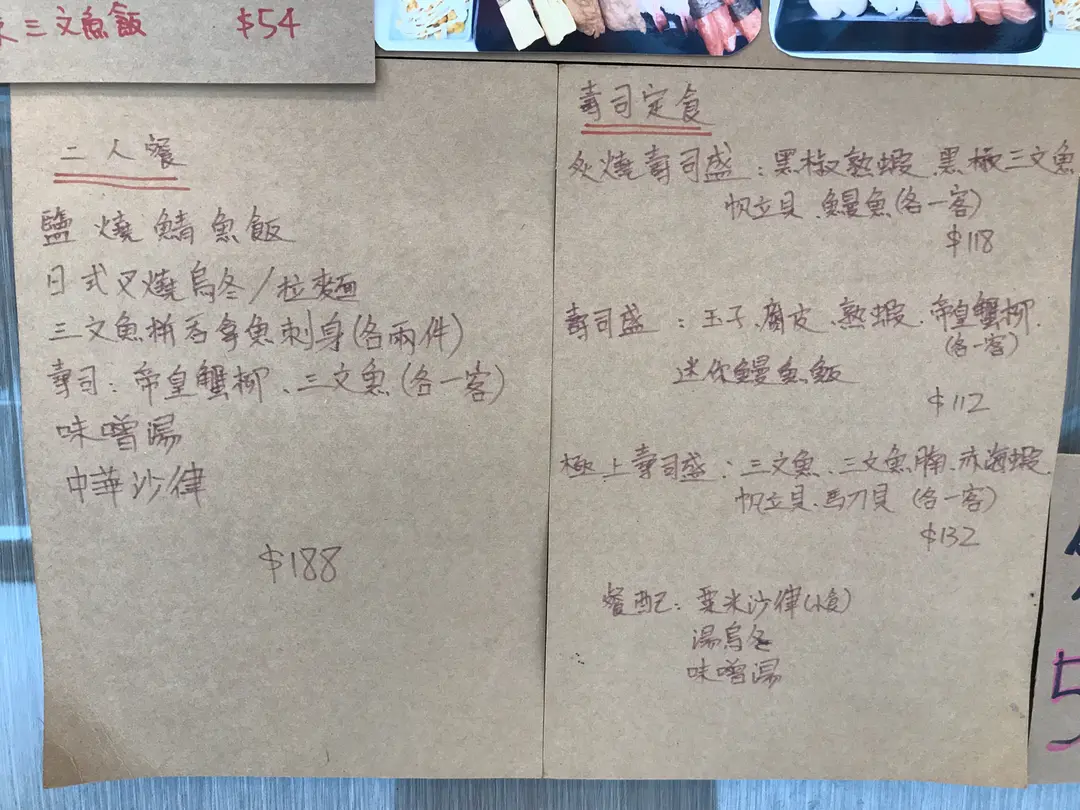 三文魚飯 $54
二人餐
鹽燒鯖魚飯
日式叉燒烏冬/拉麵
三文魚拼吞拿魚刺身(各兩件)
壽司：帝皇蟹柳、三文魚(各一客)
味噌湯
中華沙律
$188
壽司定食
炙燒壽司盛：黑椒熟蝦、黑椒三文魚
帆立貝、鰻魚(各一客)
$118
壽司盛：玉子、腐皮、熟蝦、帝皇蟹柳、
(各一客)
迷你鰻魚飯
$112
極上壽司盛：三文魚、三文魚腩、赤海蝦、
帆立貝、馬刀貝(各一客)
$132
餐配：粟米沙律(小食)
湯烏冬
味噌湯